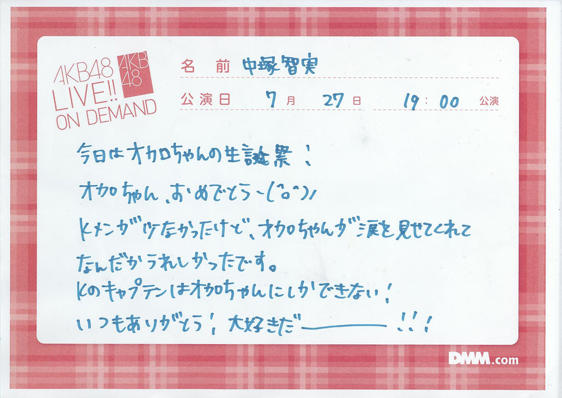 AKB48
LIVE!!
ON DEMAND
AKB
48
名前 中塚智実
公演日 7月 27日 19:00 公演
今日はオカロちゃんの生誕祭!
オカロちゃん、おめでとう~(^o^)ノ
Kメンが少なかったけど、オカロちゃんが涙を見せてくれて
なんだかうれしかったです。
Kのキャプテンはオカロちゃんにしかできない!
いつもありがとう! 大好きだ――――!!!
DMM.com